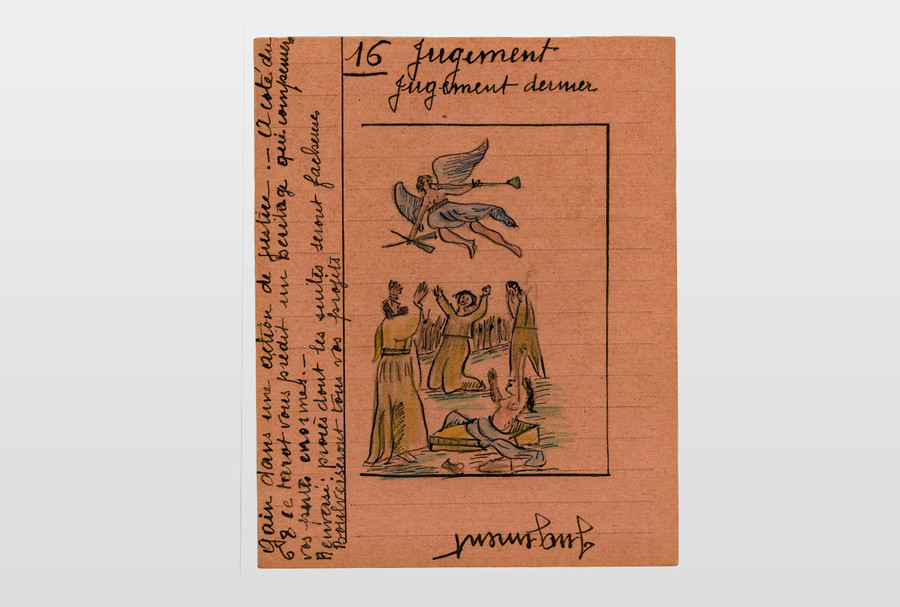 16 Jugement
Jugement dernier
Gain dans une action de justice .— A coté du
68 ce tarot vous prédit un heritage qui compensera
vos pertes enormes.—
Renversé: procès dont les suites seront facheuses
Boulverseront tous vos projets
Jugement